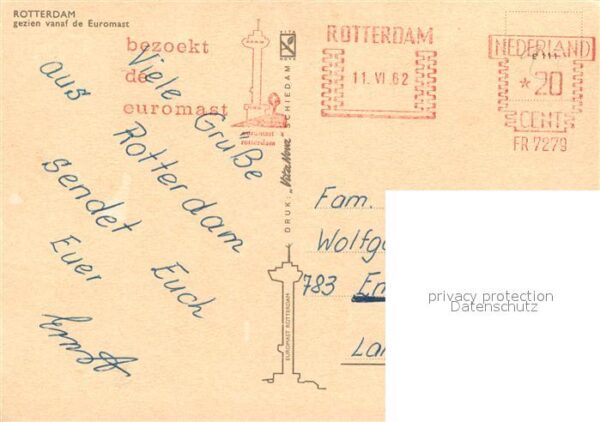 ROTTERDAM
gezien vanaf de Euromast
bezoekt
de
euromast
euromast
rotterdam
ROTTERDAM
11. VI. 62
NEDERLAND
*20
CENT
FR 7279
Viele Grüße
aus Rotterdam
sendet Euch
Euer
Ernst
DRUK. „VitaNova" SCHIEDAM
EUROMAST ROTTERDAM
Fam.
Wolfga
783 Em
Lan
privacy protection
Datenschutz